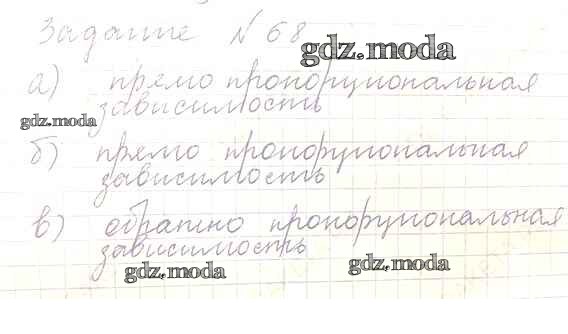 Задание № 68
gdz.moda
а) прямо пропорциональная
зависимость
gdz.moda
б) прямо пропорциональная
зависимость
в) обратно пропорциональная
зависимость
gdz.moda
gdz.moda